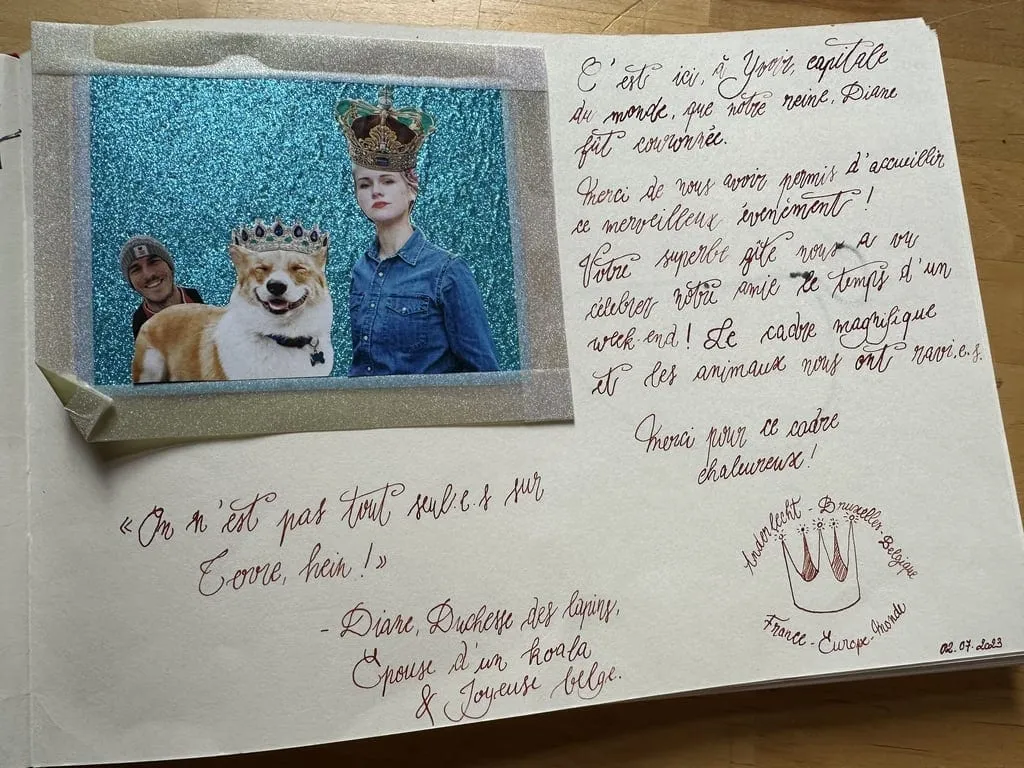 C'est ici, à Yvoir, capitale
du monde, que notre reine, Diane
fût couronnée.
Merci de nous avoir permis d'accueillir
ce merveilleux évenément !
Votre superbe gîte nous a vu
célebrer notre amie le temps d'un
week-end ! Le cadre magnifique
et les animaux nous ont ravi.e.s.
Merci pour ce cadre
chaleureux !
« On n'est pas tout seul.e.s sur
Terre, hein ! »
- Diane, Duchesse des lapins,
Épouse d'un koala
& Joyeuse belge.
Anderlecht - Bruxelles - Belgique
France - Europe - Monde
02.07.2023